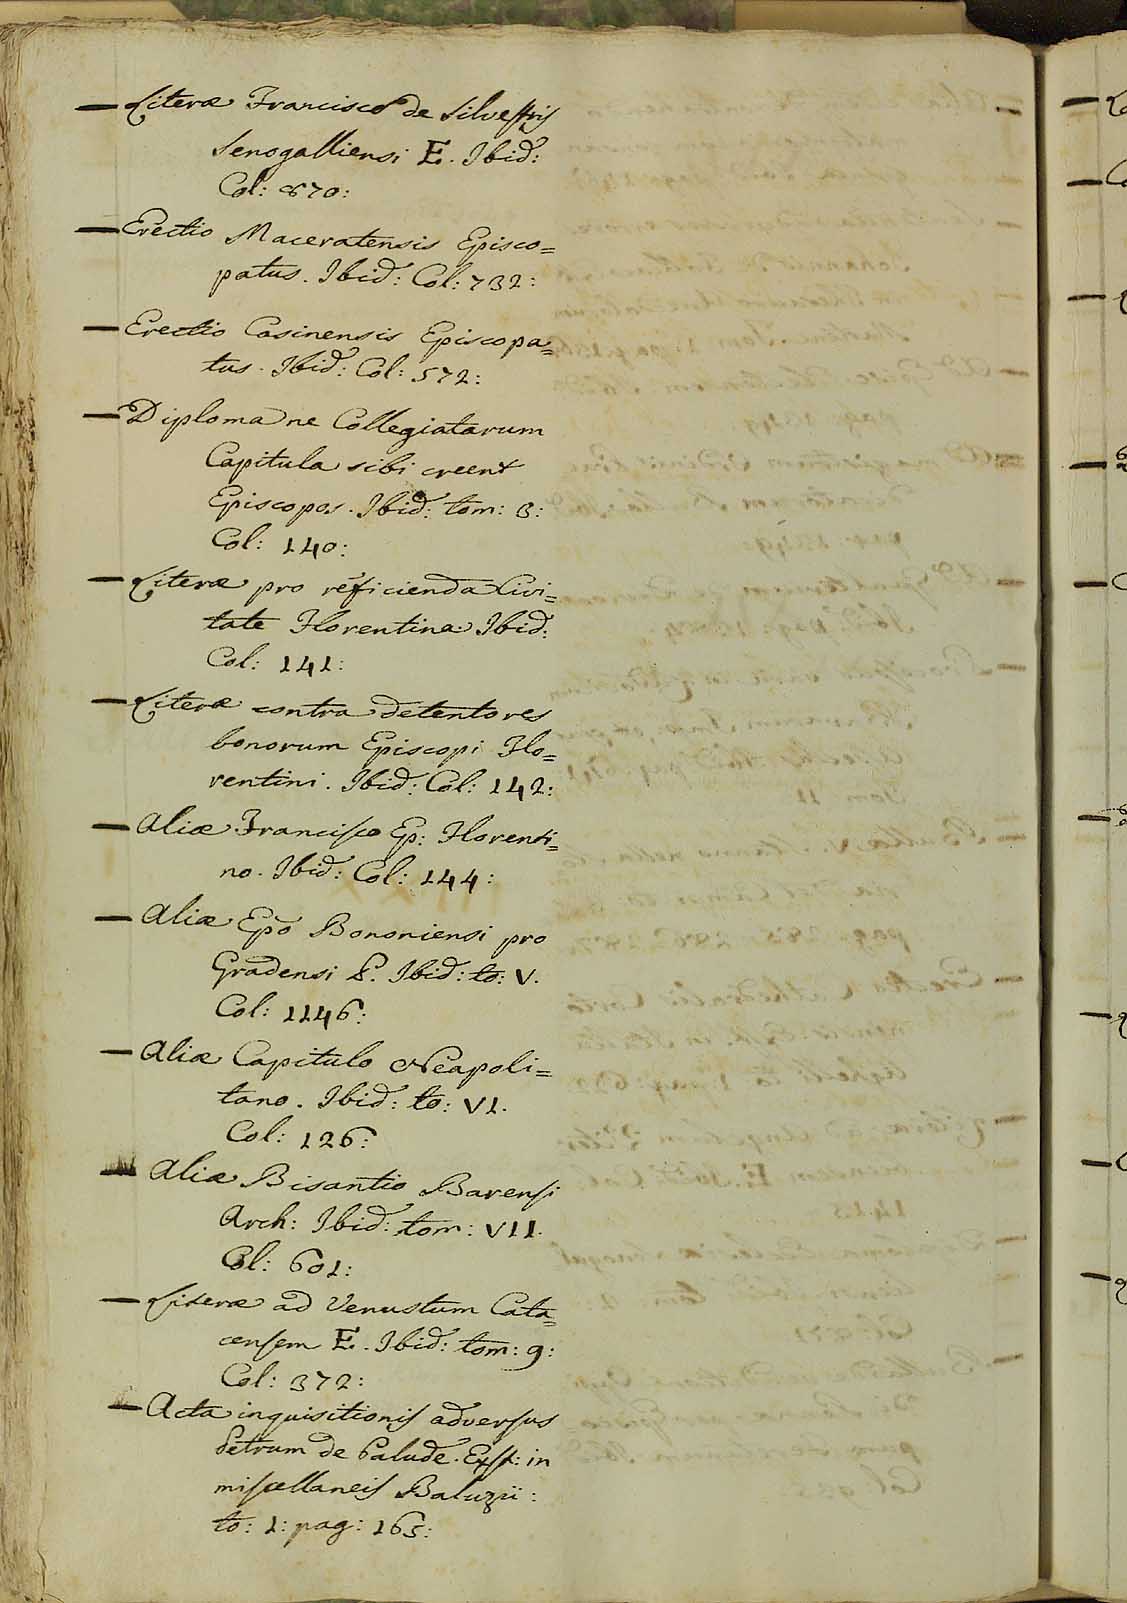 — Literæ Francisco de Silvestris
Senogalliensi E. Ibid:
Col: 870:
— Erectio Maceratensis Episco=
patus. Ibid: Col: 732:
— Erectio Casinensis Episcopa=
tus. Ibid: Col: 572:
— Diploma ne Collegiatarum
Capitula sibi creent
Episcopos. Ibid: tom: 3:
Col: 140:
— Literæ pro reficienda Civi=
tate Florentina Ibid:
Col: 141:
— Literæ contra detentores
bonorum Episcopi Flo=
rentini. Ibid: Col: 142:
— Aliæ Francisco Ep: Florenti=
no. Ibid: Col: 144:
— Aliæ Epõ Bononiensi pro
Gradensi P. Ibid: to: V.
Col: 1146:
— Aliæ Capitulo Neapoli=
tano. Ibid: to: VI.
Col: 126:
— Aliæ Bisantio Barensi
Arch: Ibid: tom: VII.
Col: 601:
— Literæ ad Venustum Cata=
censem E. Ibid: tom: 9:
Col: 372:
— Acta inquisitionis adversus
Petrum de Palude. Exst: in
miscellaneis Baluzii:
to: 1: pag: 165: